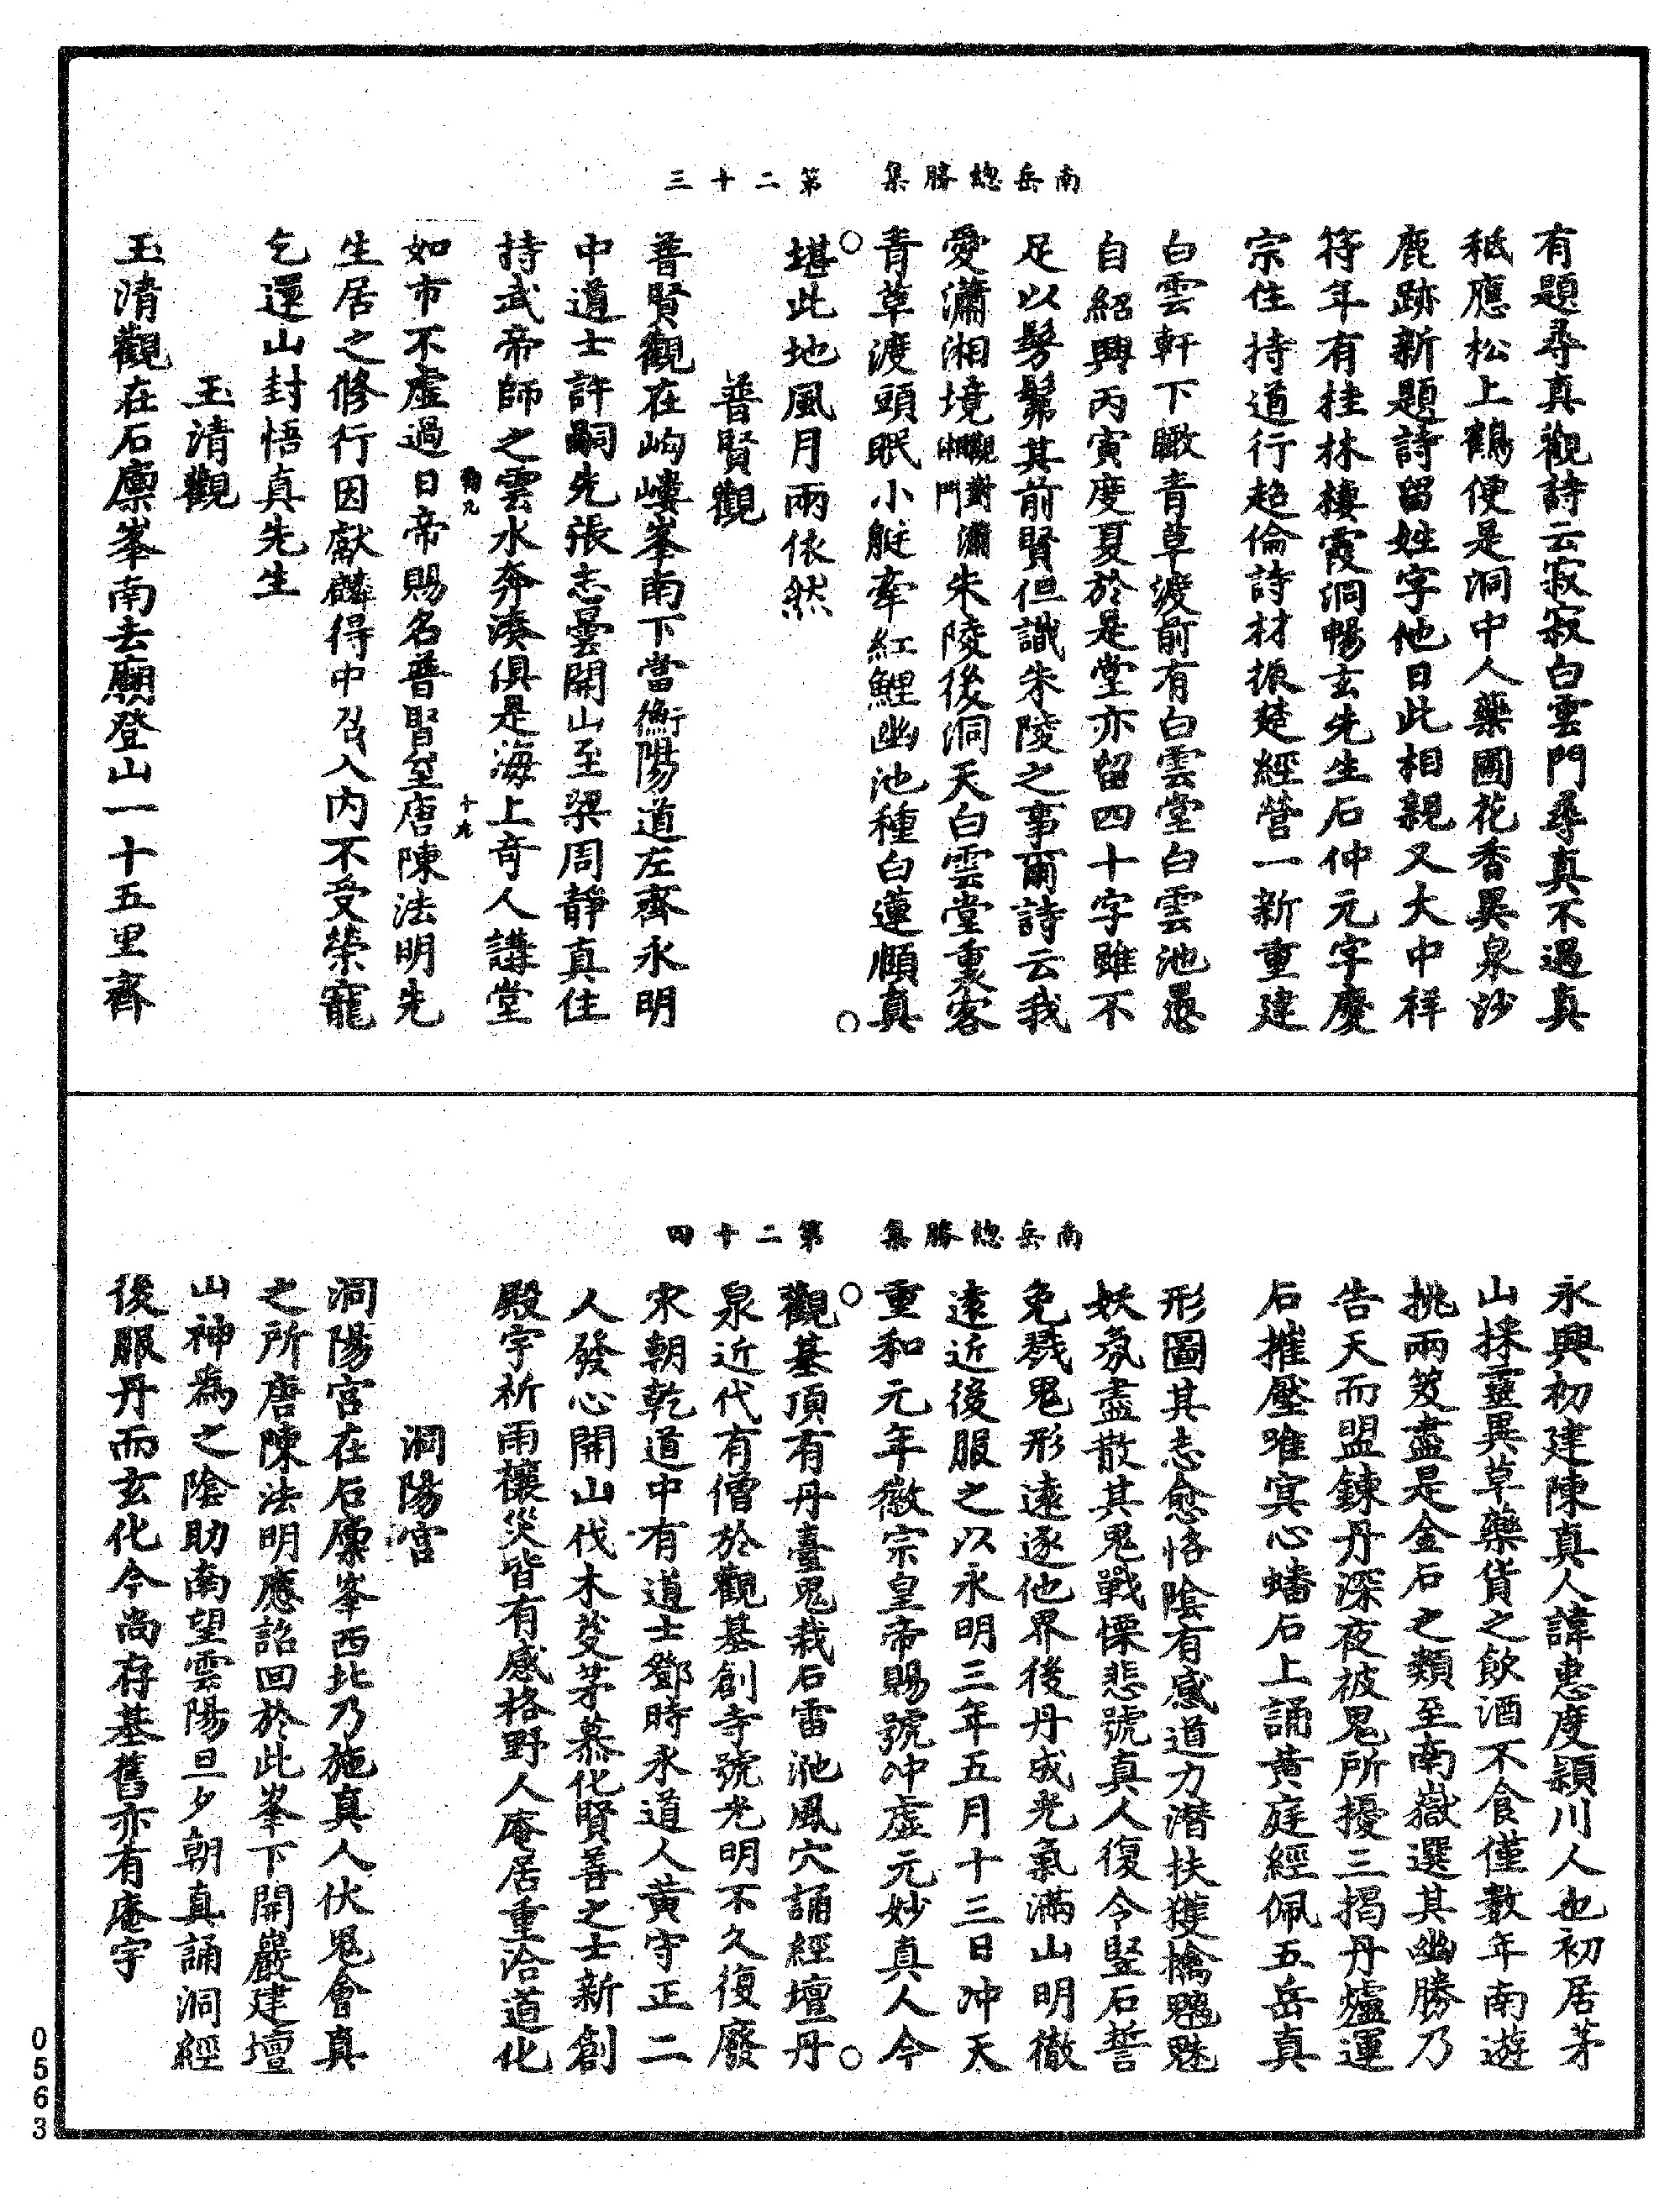 南岳總勝集　第二十三
有題尋真觀詩云寂寂白雲門尋真不遇真
秪應松上鶴便是洞中人藥圃花香異泉沙
鹿跡新題詩留姓字他日此相親又大中祥
符年有桂林棲霞洞暢玄先生石仲元字慶
宗住持道行超倫詩材振楚經營一新重建
白雲軒下瞰青草渡前有白雲堂白雲池愚
自紹興丙寅度夏於是堂亦留四十字雖不
足以髣髴其前賢但識朱陵之事爾詩云我
愛瀟湘境觀對瀟湘門朱陵後洞天白雲堂裏客
青草渡頭眠小艇牽紅鯉幽池種白蓮頗真
堪此地風月兩依然
普賢觀
普賢觀在岣嶁峯南下當衡陽道左齊永明
中道士許嗣先張志曇開山至梁周靜真住
持武帝師之雲水奔湊俱是海上奇人講堂
如市不虛過日帝賜名普賢至唐陳法明先
十九
生居之修行因獻麟得中召入內不受榮寵
乞還山封悟真先生
玉清觀
玉清觀在石廪峯南去廟登山一十五里齊
南岳總勝集　第二十四
永興初建陳真人諱惠度潁川人也初居茅
山採靈異草藥貨之飲酒不食僅數年南遊
挑兩笈盡是金石之類至南嶽選其幽勝乃
告天而盟鍊丹深夜被鬼所擾三揭丹爐運
石摧壓唯冥心蟠石上誦黃庭經佩五岳真
形圖其志愈恪陰有感道力潛扶獲擒魑魅
妖氛盡散其鬼戰慄悲號真人復令竪石誓
免戮鬼形遠逐他界後丹成光氣滿山明徹
遠近後服之以永明三年五月十三日冲天
重和元年徽宗皇帝賜號冲虛元妙真人今
觀基頂有丹臺鬼栽石雷池風穴誦經壇丹
泉近代有僧於觀基創寺號光明不久復廢
宋朝乾道中有道士鄧時永道人黃守正二
人發心開山伐木芟茅募化賢善之士新創
殿宇祈雨禳災皆有感格野人庵居重洽道化
洞陽宮
洞陽宮在石廪峯西北乃施真人伏鬼會真
之所唐陳法明應詔回於此峯下開巖建壇
山神為之陰助南望雲陽旦夕朝真誦洞經
後服丹而玄化今尚存基舊亦有庵宇
0563